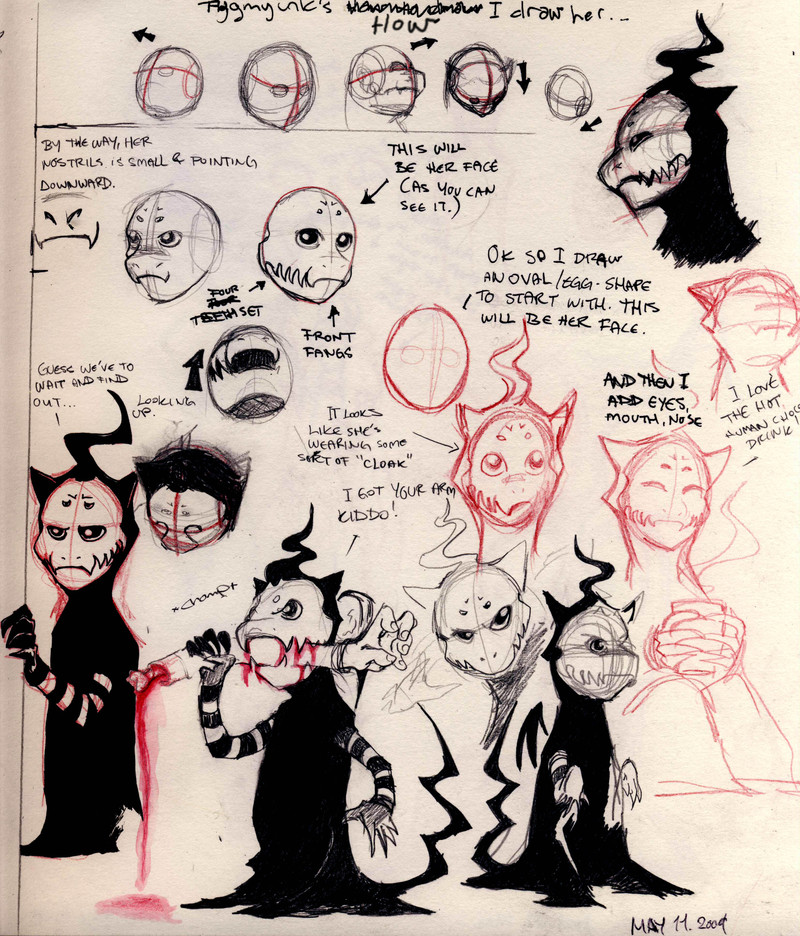 I draw her...
How
BY THE WAY, HER
NOSTRILS IS SMALL & POINTING
DOWNWARD.
THIS WILL
BE HER FACE
(AS YOU CAN
SEE IT.)
OK SO I DRAW
AN OVAL/EGG-SHAPE
TO START WITH. THIS
WILL BE HER FACE.
FOUR
TEETH SET
FRONT
FANGS
GUESS WE'VE TO
WAIT AND FIND
OUT...
LOOKING
UP.
IT LOOKS
LIKE SHE'S
WEARING SOME
SORT OF "CLOAK"
AND THEN I
ADD EYES,
MOUTH, NOSE
I LOVE
THE HOT,
HUMAN CHOCO
DRINK
I GOT YOUR ARM
KIDDO!
*chomp*
MAY 11. 2009